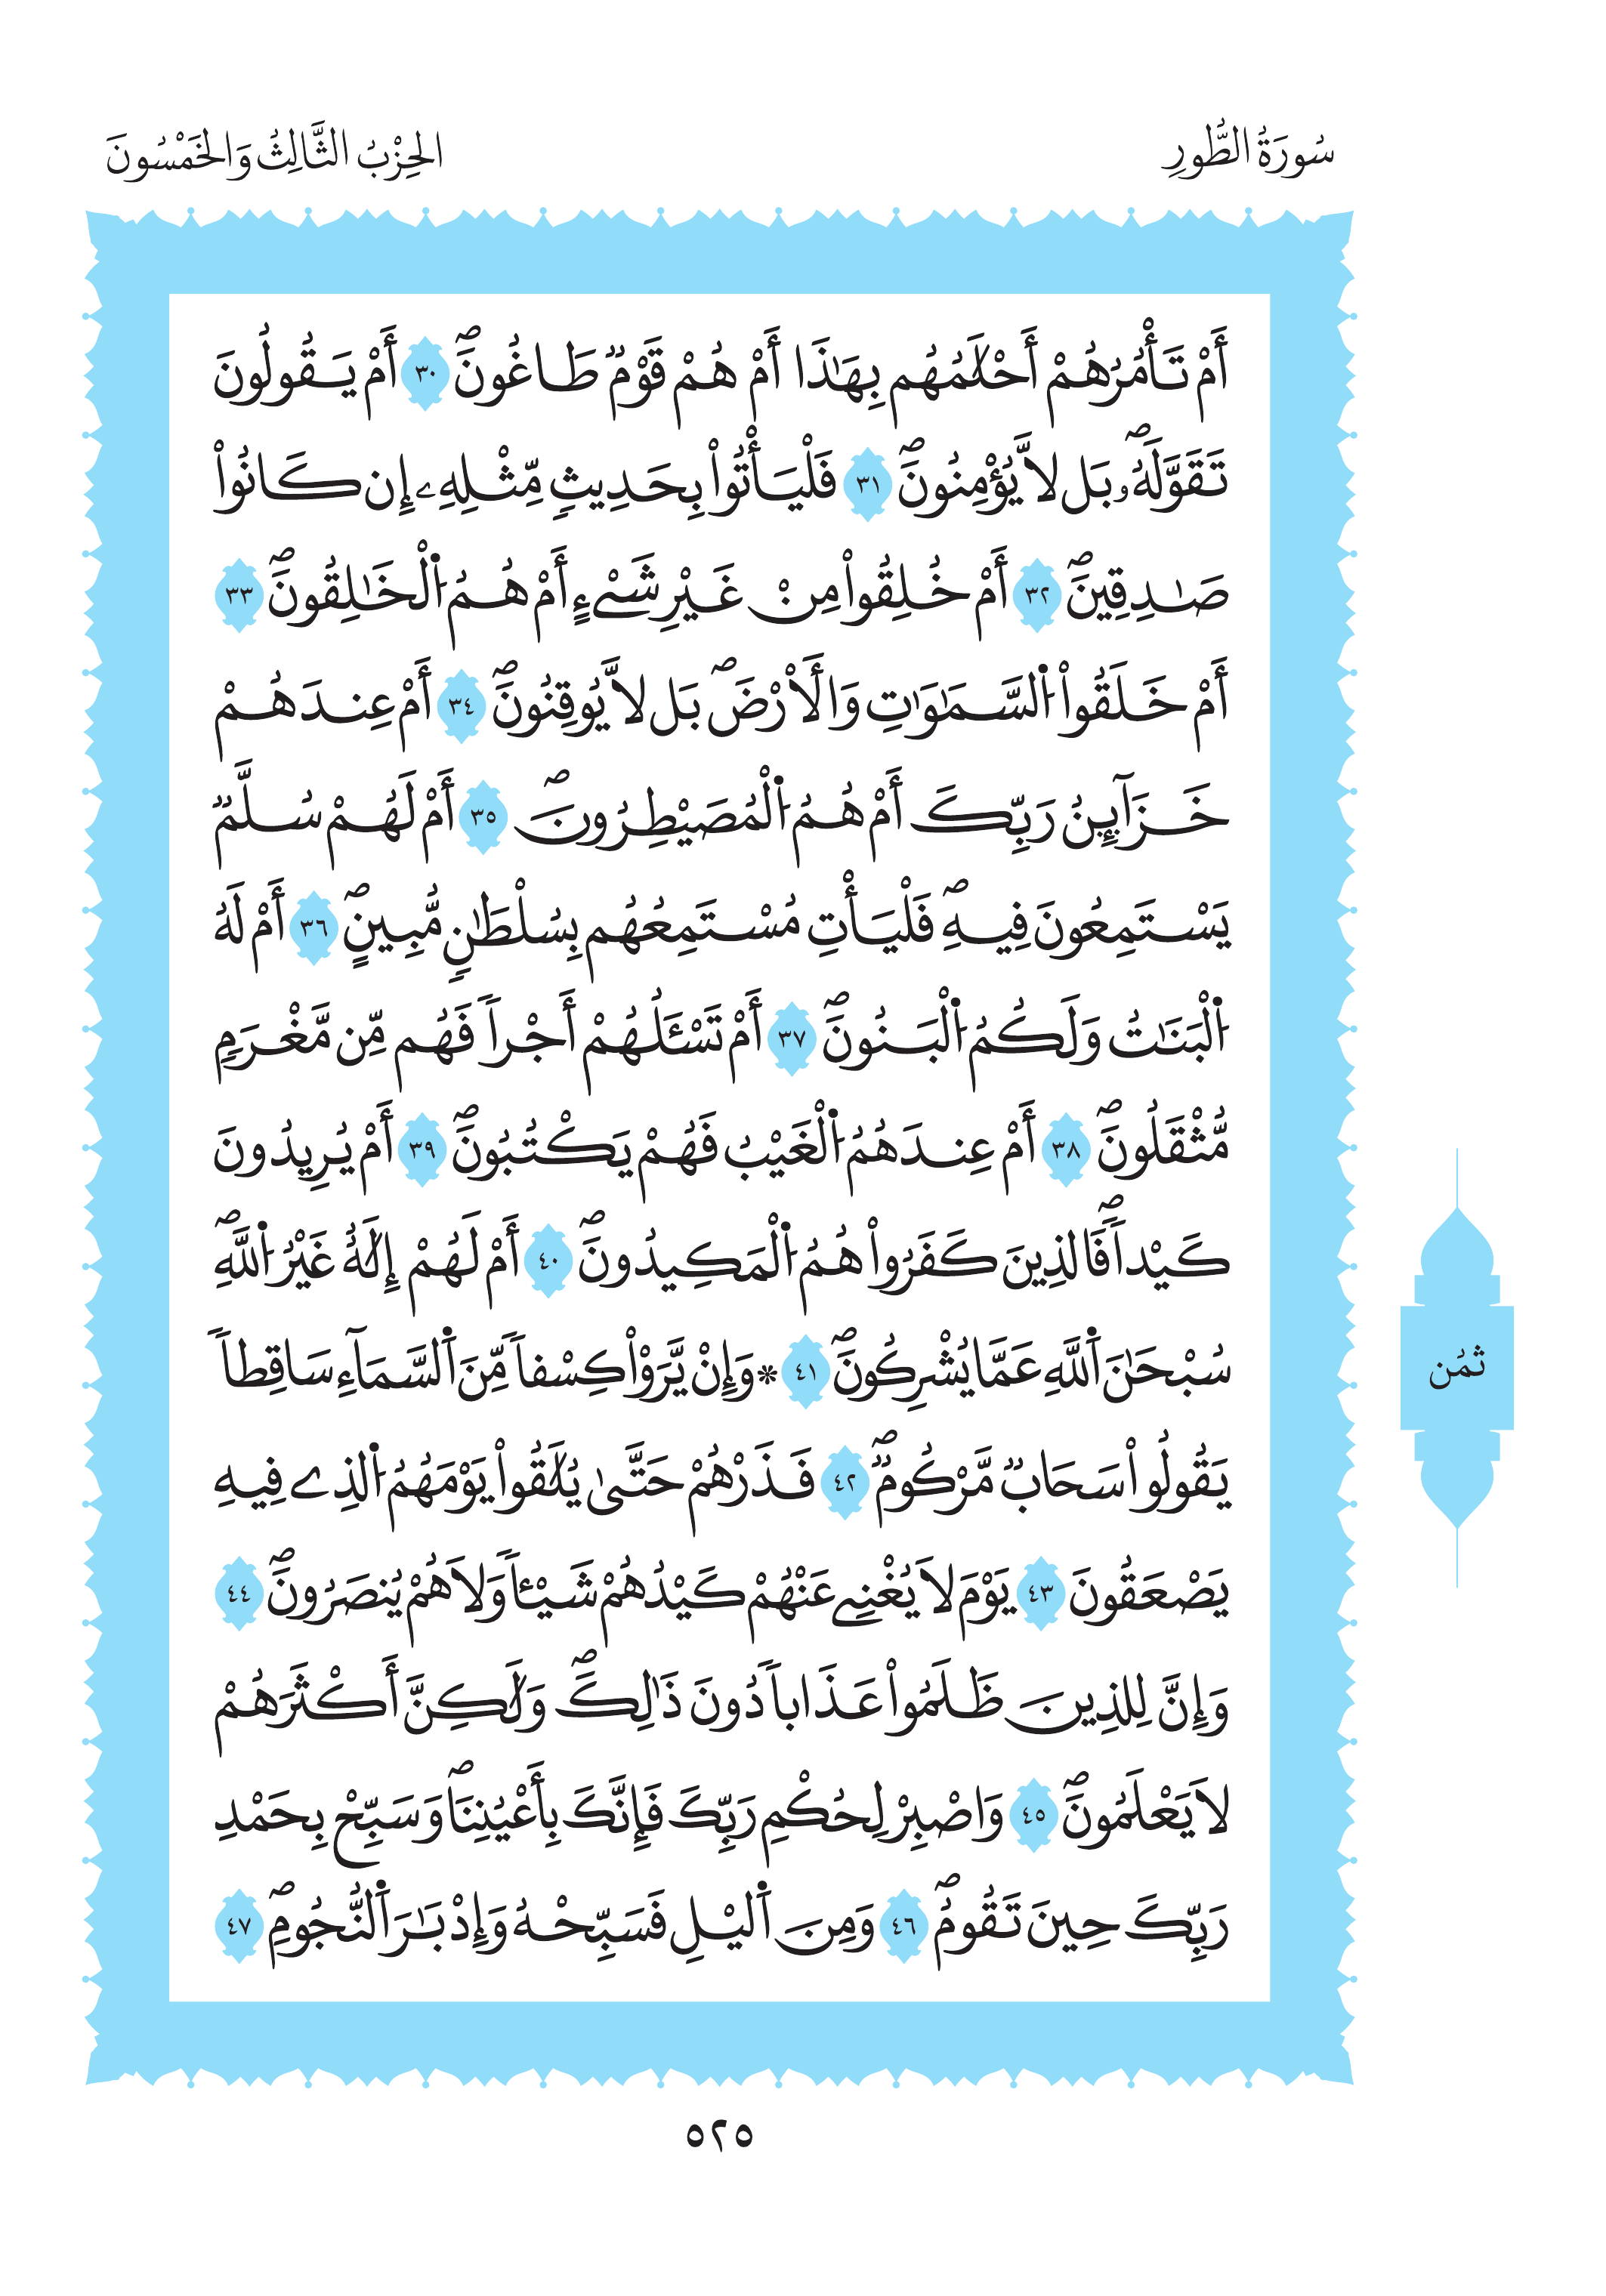 سُورَةُ الطُّورِ
الحِزْبُ الثَّالِثُ وَالخَمْسُونَ
أَمْ تَأْمُرُهُمْ أَحْلَٰمُهُم بِهَٰذَا أَمْ هُمْ قَوْمٌ طَاغُونَۖ ٣٠ أَمْ يَقُولُونَ
تَقَوَّلَهُۥۖ بَل لَّا يُؤْمِنُونَۖ ٣١ فَلْيَأْتُواْ بِحَدِيثٍ مِّثْلِهِۦ إِن كَانُواْ
صَٰدِقِينَۖ ٣٢ أَمْ خُلِقُواْ مِنْ غَيْرِ شَےْءٍ أَمْ هُمُ اُ۬لْخَٰلِقُونَۖ ٣٣
أَمْ خَلَقُواْ اُ۬لسَّمَٰوَٰتِ وَالَارْضَۖ بَل لَّا يُوقِنُونَۖ ٣٤ أَمْ عِندَهُمْ
خَزَآئِنُ رَبِّكَ أَمْ هُمُ اُ۬لْمُصَيْطِرُونَۖ ٣٥ أَمْ لَهُمْ سُلَّمٌ
يَسْتَمِعُونَ فِيهِۖ فَلْيَأْتِ مُسْتَمِعُهُم بِسُلْطَٰنٍ مُّبِينٍۖ ٣٦ أَمْ لَهُ
اُ۬لْبَنَٰتُ وَلَكُمُ اُ۬لْبَنُونَۖ ٣٧ أَمْ تَسْـَٔلُهُمْ أَجْراً فَهُم مِّن مَّغْرَمٍ
مُّثْقَلُونَۖ ٣٨ أَمْ عِندَهُمُ اُ۬لْغَيْبُ فَهُمْ يَكْتُبُونَۖ ٣٩ أَمْ يُرِيدُونَ
كَيْداًۖ فَالذِينَ كَفَرُواْ هُمُ اُ۬لْمَكِيدُونَۖ ٤٠ أَمْ لَهُمْ إِلَٰهٌ غَيْرُ اُ۬للَّهِۖ
سُبْحَٰنَ اَ۬للَّهِ عَمَّا يُشْرِكُونَۖ ٤١ * وَإِنْ يَّرَوْاْ كِسْفاً مِّنَ اَ۬لسَّمَآءِ سَاقِطاً
يَقُولُواْ سَحَابٌ مَّرْكُومٌۖ ٤٢ فَذَرْهُمْ حَتَّىٰ يُلَٰقُواْ يَوْمَهُمُ اُ۬لذِے فِيهِ
يَصْعَقُونَ ٤٣ يَوْمَ لَا يُغْنِے عَنْهُمْ كَيْدُهُمْ شَيْـٔاً وَلَا هُمْ يُنصَرُونَۖ ٤٤
وَإِنَّ لِلذِينَ ظَلَمُواْ عَذَاباً دُونَ ذَٰلِكَۖ وَلَٰكِنَّ أَكْثَرَهُمْ
لَا يَعْلَمُونَۖ ٤٥ وَاصْبِرْ لِحُكْمِ رَبِّكَ فَإِنَّكَ بِأَعْيُنِنَاۖ وَسَبِّحْ بِحَمْدِ
رَبِّكَ حِينَ تَقُومُۖ ٤٦ وَمِنَ اَ۬ليْلِ فَسَبِّحْهُ وَإِدْبَٰرَ اَ۬لنُّجُومِۖ ٤٧
ثمُن
٥٢٥